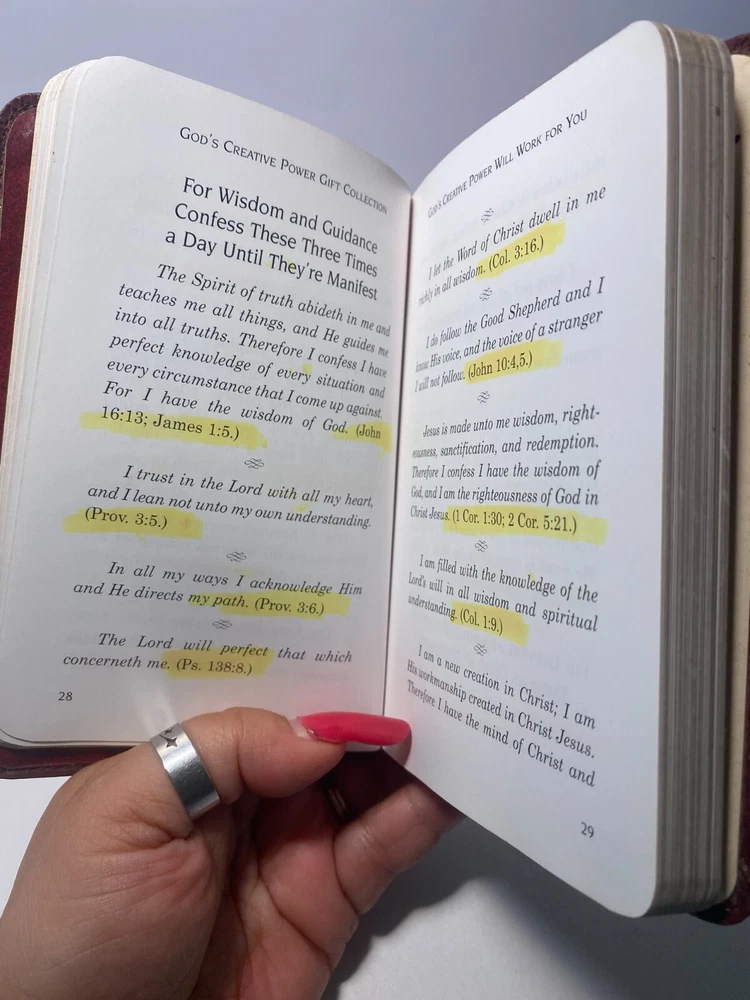 GOD'S CREATIVE POWER GIFT COLLECTION
For Wisdom and Guidance
Confess These Three Times
a Day Until They're Manifest
The Spirit of truth abideth in me and
teaches me all things, and He guides me
into all truths. Therefore I confess I have
perfect knowledge of every situation and
every circumstance that I come up against.
For I have the wisdom of God. (John
16:13; James 1:5.)
I trust in the Lord with all my heart,
and I lean not unto my own understanding.
(Prov. 3:5.)
In all my ways I acknowledge Him
and He directs my path. (Prov. 3:6.)
The Lord will perfect that which
concerneth me. (Ps. 138:8.)
28
GOD'S CREATIVE POWER WILL WORK FOR YOU
I let the Word of Christ dwell in me
richly in all wisdom. (Col. 3:16.)
I do follow the Good Shepherd and I
know His voice, and the voice of a stranger
I will not follow. (John 10:4,5.)
Jesus is made unto me wisdom, right-
eousness, sanctification, and redemption.
Therefore I confess I have the wisdom of
God, and I am the righteousness of God in
Christ Jesus. (1 Cor. 1:30; 2 Cor. 5:21.)
I am filled with the knowledge of the
Lord's will in all wisdom and spiritual
understanding. (Col. 1:9.)
I am a new creation in Christ; I am
His workmanship created in Christ Jesus.
Therefore I have the mind of Christ and
29